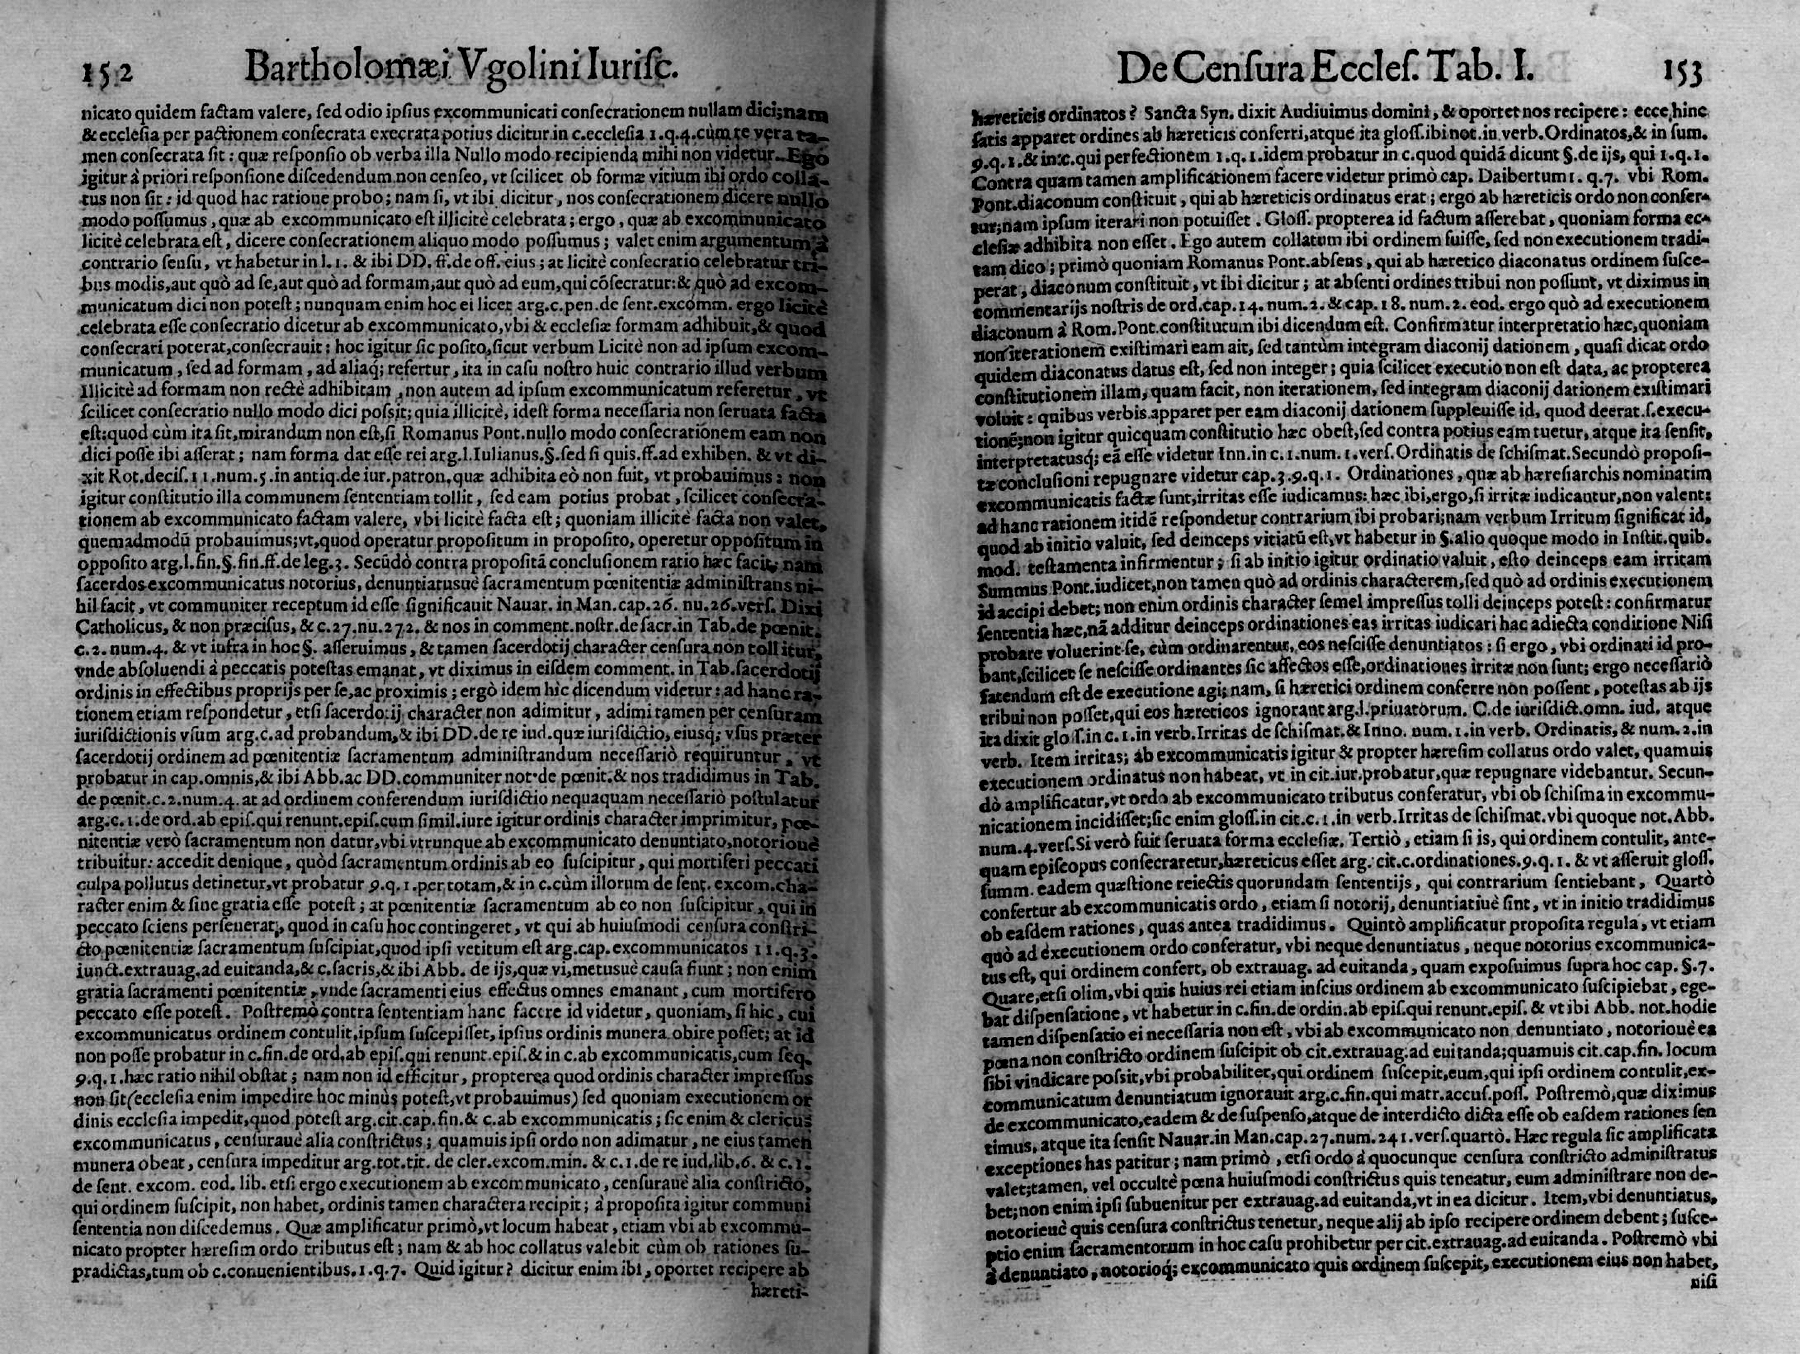 152 Bartholomæi Vgolini Iurisc.
nicato quidem factam valere, sed odio ipsius excommunicati consecrationem nullam dici; nam
& ecclesia per pactionem consecrata execrata potius dicitur in c.ecclesia 1.q.4.cùm re vera ta-
men consecrata sit: quæ responsio ob verba illa Nullo modo recipienda mihi non videtur. Ego
igitur à priori responsione discedendum non censeo, vt scilicet ob formæ vitium ibi ordo colla-
tus non sit: id quod hac ratione probo; nam si, vt ibi dicitur, nos consecrationem dicere nullo
modo possumus, quæ ab excommunicato est illicitè celebrata; ergo, quæ ab excommunicato
licitè celebrata est, dicere consecrationem aliquo modo possumus; valet enim argumentum à
contrario sensu, vt habetur in l.1. & ibi DD. ff.de off. eius; at licitè consecratio celebratur tri-
bus modis, aut quò ad se, aut quò ad formam, aut quò ad eum, qui cōsecratur: & quò ad excom-
municatum dici non potest; nunquam enim hoc ei licet arg.c.pen.de sent.excomm. ergo licitè
celebrata esse consecratio dicetur ab excommunicato, vbi & ecclesiæ formam adhibuit, & quod
consecrari poterat, consecrauit; hoc igitur sic posito, sicut verbum Licitè non ad ipsum excom-
municatum, sed ad formam, ad aliaq; refertur, ita in casu nostro huic contrario illud verbum
Illicitè ad formam non rectè adhibitam, non autem ad ipsum excommunicatum referetur, vt
scilicet consecratio nullo modo dici possit; quia illicitè, idest forma necessaria non seruata facta
est; quod cùm ita sit, mirandum non est, si Romanus Pont.nullo modo consecrationem eam non
dici posse ibi asserat; nam forma dat esse rei arg.l.Iulianus.§.sed si quis.ff.ad exhiben. & vt di-
xit Rot.decis.11.num.5.in antiq.de iur.patron, quæ adhibita eò non fuit, vt probauimus: non
igitur constitutio illa communem sententiam tollit, sed eam potius probat, scilicet consecra-
tionem ab excommunicato factam valere, vbi licitè facta est; quoniam illicitè facta non valet,
quemadmodū probauimus; vt, quod operatur propositum in proposito, operetur oppositum in
opposito arg.l.fin.§.fin.ff.de leg.3. Secūdò contra propositā conclusionem ratio hæc facit, nam
sacerdos excommunicatus notorius, denuntiatusuè sacramentum pœnitentiæ administrans ni-
hil facit, vt communiter receptum id esse significauit Nauar. in Man.cap.26. nu.26.vers. Dixi
Catholicus, & non præcisus, & c.27.nu.272. & nos in comment.nostr.de sacr.in Tab.de pœnit.
c.2. num.4. & vt infra in hoc §. asseruimus, & tamen sacerdotij character censura non tollitur,
vnde absoluendi à peccatis potestas emanat, vt diximus in eisdem comment. in Tab.sacerdotij
ordinis in effectibus proprijs per se, ac proximis; ergò idem hic dicendum videtur: ad hanc ra-
tionem etiam respondetur, etsi sacerdotij character non adimitur, adimi tamen per censuram
iurisdictionis vsum arg.c.ad probandum, & ibi DD.de re iud.quæ iurisdictio, eiusq; vsus præter
sacerdotij ordinem ad pœnitentiæ sacramentum administrandum necessariò requiruntur, vt
probatur in cap.omnis, & ibi Abb.ac DD.communiter not.de pœnit.& nos tradidimus in Tab.
de pœnit.c.2.num.4. at ad ordinem conferendum iurisdictio nequaquam necessariò postulatur
arg.c.1.de ord.ab epis.qui renunt.epis.cum simil.iure igitur ordinis character imprimitur, pœ-
nitentiæ verò sacramentum non datur, vbi vtrunque ab excommunicato denuntiato, notoriouè
tribuitur: accedit denique, quòd sacramentum ordinis ab eo suscipitur, qui mortiferi peccati
culpa pollutus detinetur, vt probatur 9.q.1.per totam, & in c.cùm illorum de sent. excom.cha-
racter enim & sine gratia esse potest; at pœnitentiæ sacramentum ab eo non suscipitur, qui in
peccato sciens perseuerat, quod in casu hoc contingeret, vt qui ab huiusmodi censura constri-
cto pœnitentiæ sacramentum suscipiat, quod ipsi vetitum est arg.cap.excommunicatos 11.q.3.
iunct.extrauag.ad euitanda, & c.sacris, & ibi Abb. de ijs, quæ vi, metusuè causa fiunt; non enim
gratia sacramenti pœnitentiæ, vnde sacramenti eius effectus omnes emanant, cum mortifero
peccato esse potest. Postremò contra sententiam hanc facere id videtur, quoniam, si hic, cui
excommunicatus ordinem contulit, ipsum suscepisset, ipsius ordinis munera obire posset; at id
non posse probatur in c.fin.de ord.ab epis.qui renunt.epis.& in c.ab excommunicatis, cum seq.
9.q.1.hæc ratio nihil obstat; nam non id efficitur, propterea quod ordinis character impressus
non sit (ecclesia enim impedire hoc minùs potest, vt probauimus) sed quoniam executionem or
dinis ecclesia impedit, quod potest arg.cit.cap.fin.& c.ab excommunicatis; sic enim & clericus
excommunicatus, censuraue alia constrictus; quamuis ipsi ordo non adimatur, ne eius tamen
munera obeat, censura impeditur arg.tot.tit. de cler.excom.min. & c.1.de re iud.lib.6. & c.1.
de sent. excom. eod. lib. etsi ergo executionem ab excommunicato, censuraue alia constricto,
qui ordinem suscipit, non habet, ordinis tamen charactera recipit; à proposita igitur communi
sententia non discedemus. Quæ amplificatur primò, vt locum habeat, etiam vbi ab excommu-
nicato propter hæresim ordo tributus est; nam & ab hoc collatus valebit cùm ob rationes su-
pradictas, tum ob c.conuenientibus.1.q.7. Quid igitur? dicitur enim ibi, oportet recipere ab
hæreti-
De Censura Eccles. Tab. I. 153
hæreticis ordinatos? Sancta Syn. dixit Audiuimus domini, & oportet nos recipere: ecce, hinc
satis apparet ordines ab hæreticis conferri, atque ita gloss.ibi not.in verb.Ordinatos, & in sum.
9.q.1.& in c.qui perfectionem 1.q.1.idem probatur in c.quod quidā dicunt §.de ijs, qui 1.q.1.
Contra quam tamen amplificationem facere videtur primò cap. Daibertum 1.q.7. vbi Rom.
Pont.diaconum constituit, qui ab hæreticis ordinatus erat; ergo ab hæreticis ordo non confer-
tur; nam ipsum iterari non potuisset. Gloss. propterea id factum asserebat, quoniam forma ec-
clesiæ adhibita non esset. Ego autem collatum ibi ordinem fuisse, sed non executionem tradi-
tam dico; primò quoniam Romanus Pont.absens, qui ab hæretico diaconatus ordinem susce-
perat, diaconum constituit, vt ibi dicitur; at absenti ordines tribui non possunt, vt diximus in
commentarijs nostris de ord.cap.14. num.2. & cap.18. num.2. eod. ergo quò ad executionem
diaconum à Rom.Pont.constitutum ibi dicendum est. Confirmatur interpretatio hæc, quoniam
non iterationem existimari eam ait, sed tantùm integram diaconij dationem, quasi dicat ordo
quidem diaconatus datus est, sed non integer; quia scilicet executio non est data, ac propterea
constitutionem illam, quam facit, non iterationem, sed integram diaconij dationem existimari
voluit: quibus verbis apparet per eam diaconij dationem suppleuisse id, quod deerat.s.execu-
tionē; non igitur quicquam constitutio hæc obest, sed contra potius eam tuetur, atque ita sensit,
interpretatusq; eā esse videtur Inn.in c.1.num.1.vers.Ordinatis de schismat.Secundò proposi-
tæ conclusioni repugnare videtur cap.3.9.q.1. Ordinationes, quæ ab hæresiarchis nominatim
excommunicatis factæ sunt, irritas esse iudicamus: hæc ibi, ergo, si irritæ iudicantur, non valent:
ad hanc rationem itidē respondetur contrarium ibi probari; nam verbum Irritum significat id,
quod ab initio valuit, sed deinceps vitiatū est, vt habetur in §.alio quoque modo in Instit.quib.
mod. testamenta infirmentur; si ab initio igitur ordinatio valuit, esto deinceps eam irritam
Summus Pont.iudicet, non tamen quò ad ordinis characterem, sed quò ad ordinis executionem
id accipi debet; non enim ordinis character semel impressus tolli deinceps potest: confirmatur
sententia hæc, nā additur deinceps ordinationes eas irritas iudicari hac adiecta conditione Nisi
probare voluerint se, cùm ordinarentur, eos nescisse denuntiatos: si ergo, vbi ordinati id pro-
bant, scilicet se nescisse ordinantes sic affectos esse, ordinationes irritæ non sunt; ergo necessariò
fatendum est de executione agi; nam, si hæretici ordinem conferre non possent, potestas ab ijs
tribui non posset, qui eos hæreticos ignorant arg.l.priuatorum. C.de iurisdict.omn. iud. atque
ita dixit gloss.in c.1.in verb.Irritas de schismat.& Inno. num.1.in verb. Ordinatis, & num.2.in
verb. Item irritas; ab excommunicatis igitur & propter hæresim collatus ordo valet, quamuis
executionem ordinatus non habeat, vt in cit.iur.probatur, quæ repugnare videbantur. Secun-
dò amplificatur, vt ordo ab excommunicato tributus conferatur, vbi ob schisma in excommu-
nicationem incidisset; sic enim gloss.in cit.c.1.in verb.Irritas de schismat.vbi quoque not.Abb.
num.4.vers.Si verò fuit seruata forma ecclesiæ. Tertiò, etiam si is, qui ordinem contulit, ante-
quam episcopus consecraretur, hæreticus esset arg. cit.c.ordinationes.9.q.1. & vt asseruit gloss.
summ. eadem quæstione reiectis quorundam sententijs, qui contrarium sentiebant, Quartò
confertur ab excommunicatis ordo, etiam si notorij, denuntiatiuè sint, vt in initio tradidimus
ob easdem rationes, quas antea tradidimus. Quintò amplificatur proposita regula, vt etiam
quò ad executionem ordo conferatur, vbi neque denuntiatus, neque notorius excommunica-
tus est, qui ordinem confert, ob extrauag. ad euitanda, quam exposuimus supra hoc cap. §.7.
Quare, etsi olim, vbi quis huius rei etiam inscius ordinem ab excommunicato suscipiebat, ege-
bat dispensatione, vt habetur in c.fin.de ordin.ab epis.qui renunt.epis. & vt ibi Abb. not.hodie
tamen dispensatio ei necessaria non est, vbi ab excommunicato non denuntiato, notoriouè ea
pœna non constricto ordinem suscipit ob cit.extrauag.ad euitanda; quamuis cit.cap.fin. locum
sibi vindicare possit, vbi probabiliter, qui ordinem suscepit, eum, qui ipsi ordinem contulit, ex-
communicatum denuntiatum ignorauit arg.c.fin.qui matr.accus.poss. Postremò, quæ diximus
de excommunicato, eadem & de suspenso, atque de interdicto dicta esse ob easdem rationes sen
timus, atque ita sensit Nauar.in Man.cap.27.num.241.vers.quartò. Hæc regula sic amplificata
exceptiones has patitur; nam primò, etsi ordo à quocunque censura constricto administratus
valet; tamen, vel occultè pœna huiusmodi constrictus quis teneatur, eum administrare non de-
bet; non enim ipsi subuenitur per extrauag.ad euitanda, vt in ea dicitur. Item, vbi denuntiatus,
notorieuè quis censura constrictus tenetur, neque alij ab ipso recipere ordinem debent; susce-
ptio enim sacramentorum in hoc casu prohibetur per cit.extrauag.ad euitanda. Postremò vbi
à denuntiato, notorioq; excommunicato quis ordinem suscepit, executionem eius non habet,
nisi